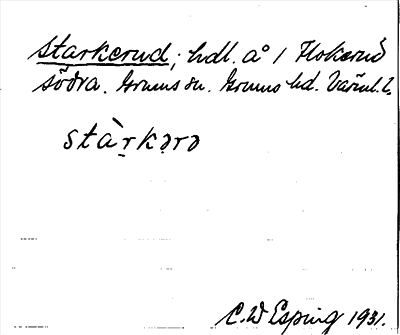 Starkerud; hdl. å 1 Flokerud
södra. Grums sn. Grums hd. Värml. l.
stàṛkərə
C. W Esping 1931.